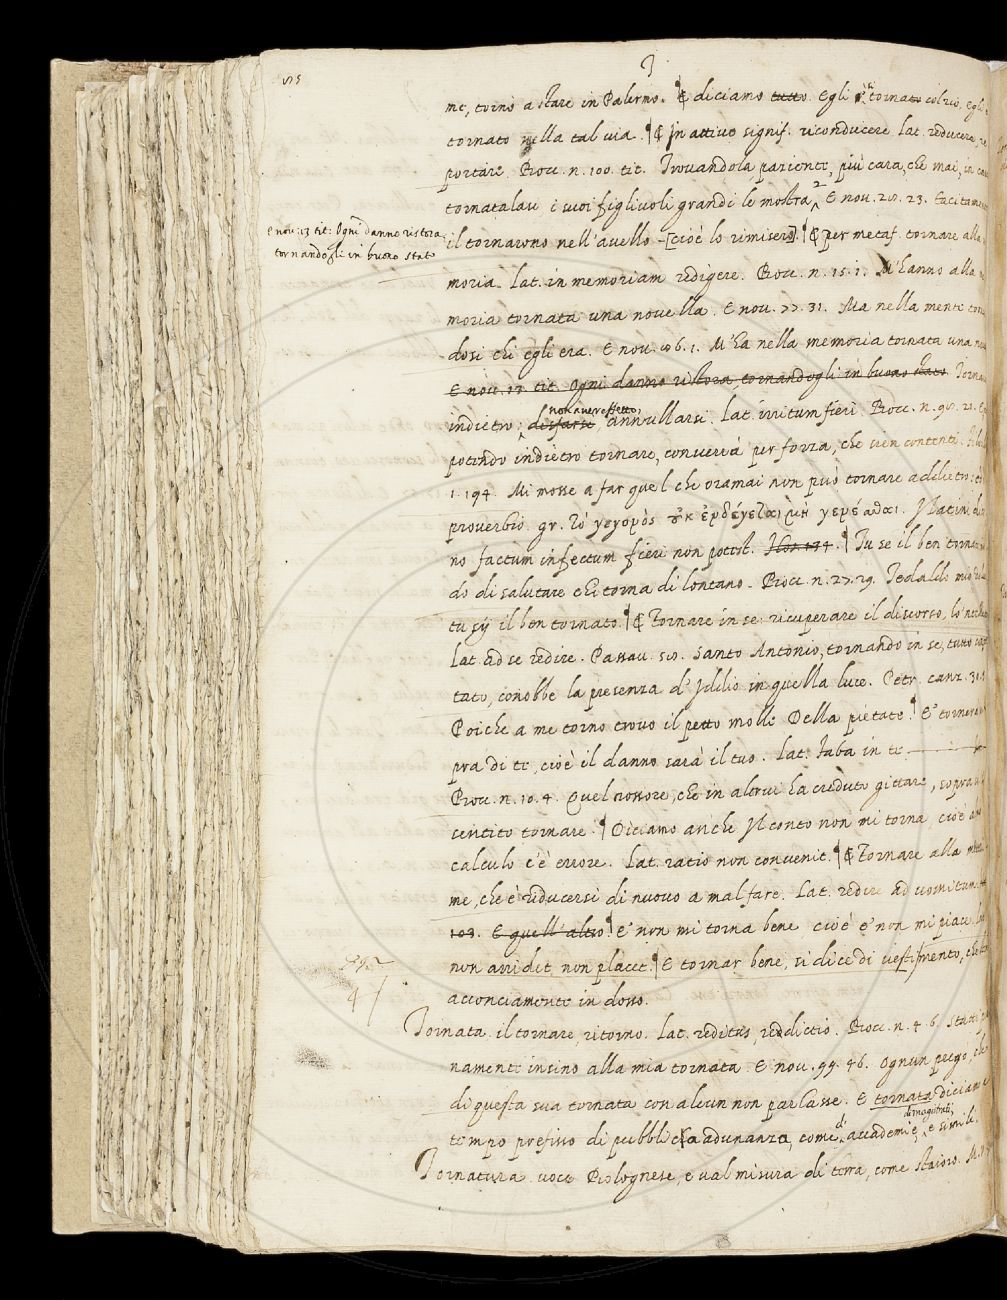 T
me, tornò a stare in Palermo. ¶ E diciamo tutto. Egli è tornato col viso, Egli è
tornato nella tal via. ¶ E In attivo signif. riconducere. Lat. reducere, re-
portare. Bocc. n. 100. tit. Trovandola paziente, più cara, che mai, in casa
tornatalasi i suoi figliuoli grandi le mostra. E nov. 28. 23. Tacitamente
il tornarono nell'avello [cioè lo rimisero]. ¶ E per metaf. tornare alla
E nov. 13 tit: Ogni danno ristora
tornandogli in buono stato
moria. Lat. in memoriam redigere. Bocc. n. 15. 1. M'hanno alla
moria tornata una novella. E nov. 77. 31. Ma nella mente
dosi chi egli era. E nov. 86. 1. M'ha nella memoria tornata una
E nov. 13 tit. Ogni danno ristora, tornandogli in buono stato.
indietro, disfarsi non aver effetto, annullarsi. Lat. irritum fieri. Bocc. n. 98. 22.
potendo indietro tornare, converrà per forza, che sien contenti.
1. 194. Mi mosse a far quel che oramai non può tornare addietro:
proverbio. gr. Τό γεγονὸς οὐκ ἐνδέχεται μὴ γενέσθαι. I latini
no factum infectum fieri non potest. ¶ Tu se il ben tornato
do di salutare chi torna di lontano. Bocc. n. 27. 29. Tedaldo mio
tu sij il ben tornato. ¶ E Tornare in se: ricuperare il discorso,
Lat. ad se redire. Passav. 58. Santo Antonio, tornando in se, tutto
tato, conobbe la presenza d'Iddio in quella luce. Petr. canz.
Poiche a me torno trovo il petto molle Della pietate. ¶ E' tornerà
pra di te, cioè il danno sarà il tuo. Lat. faba in te
Bocc. n. 10. 4. Quel rossore, che in altrui ha creduto gittare, sopra
sentito tornare. ¶ Diciamo anche Il conto non mi torna, cioè
calculo c'è errore. Lat. ratio non convenit. ¶ E Tornare alla
me, che è riducersi di nuovo a mal fare. Lat. redire ad vomitum
103. E quell'altro. ¶ E' non mi torna bene cioè e' non mi piace.
non arridet non placet. ¶ E tornar bene, si dice di vestimento, che
acconciamente in dosso.
Tornata. il tornare, ritorno. Lat. reditus, reditio. Bocc. n. 4. 6.
namente insino alla mia tornata. E nov. 99. 46. Ognun prego, che
di questa sua tornata con alcun non parlasse. E tornata diciamo
tempo prefisso di pubblica adunanza, come d'accademie, di magistrati, e simili.
Tornatura. voce Bolognese, e val misura di terra, come staioro.